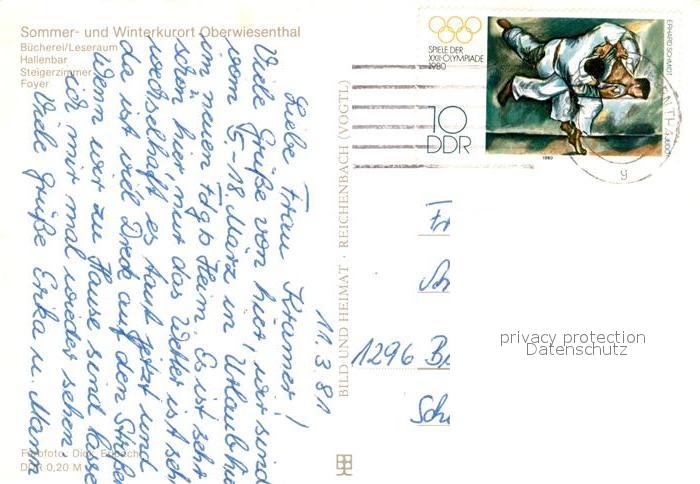 Sommer- und Winterkurort Oberwiesenthal
Bücherei/Leseraum
Hallenbar
Steigerzimmer
Foyer
11. 3. 81
Liebe Frau Kramer!
Viele Grüße von hier, wir sind
vom 5-18 März in Urlaub hier
im neuen Fdgb Heim. Es ist sehr
schön hier, nur das Wetter ist sehr
wechselhaft, es taut jetzt und
da ist viel Dreck auf den Straßen
Wenn wir zu Hause sind lasse
ich mir mal wieder sehen.
Viele Grüße Erika u. Mann
Farbfoto: Dick,
DDR 0,20 M
BILD UND HEIMAT · REICHENBACH (VOGTL)
SPIELE DER
XXII. OLYMPIADE
1980
10
DDR
ERHARD SCHMIDT
JUDO
1980
y
Fr
1296 B
Sch
privacy protection
Datenschutz